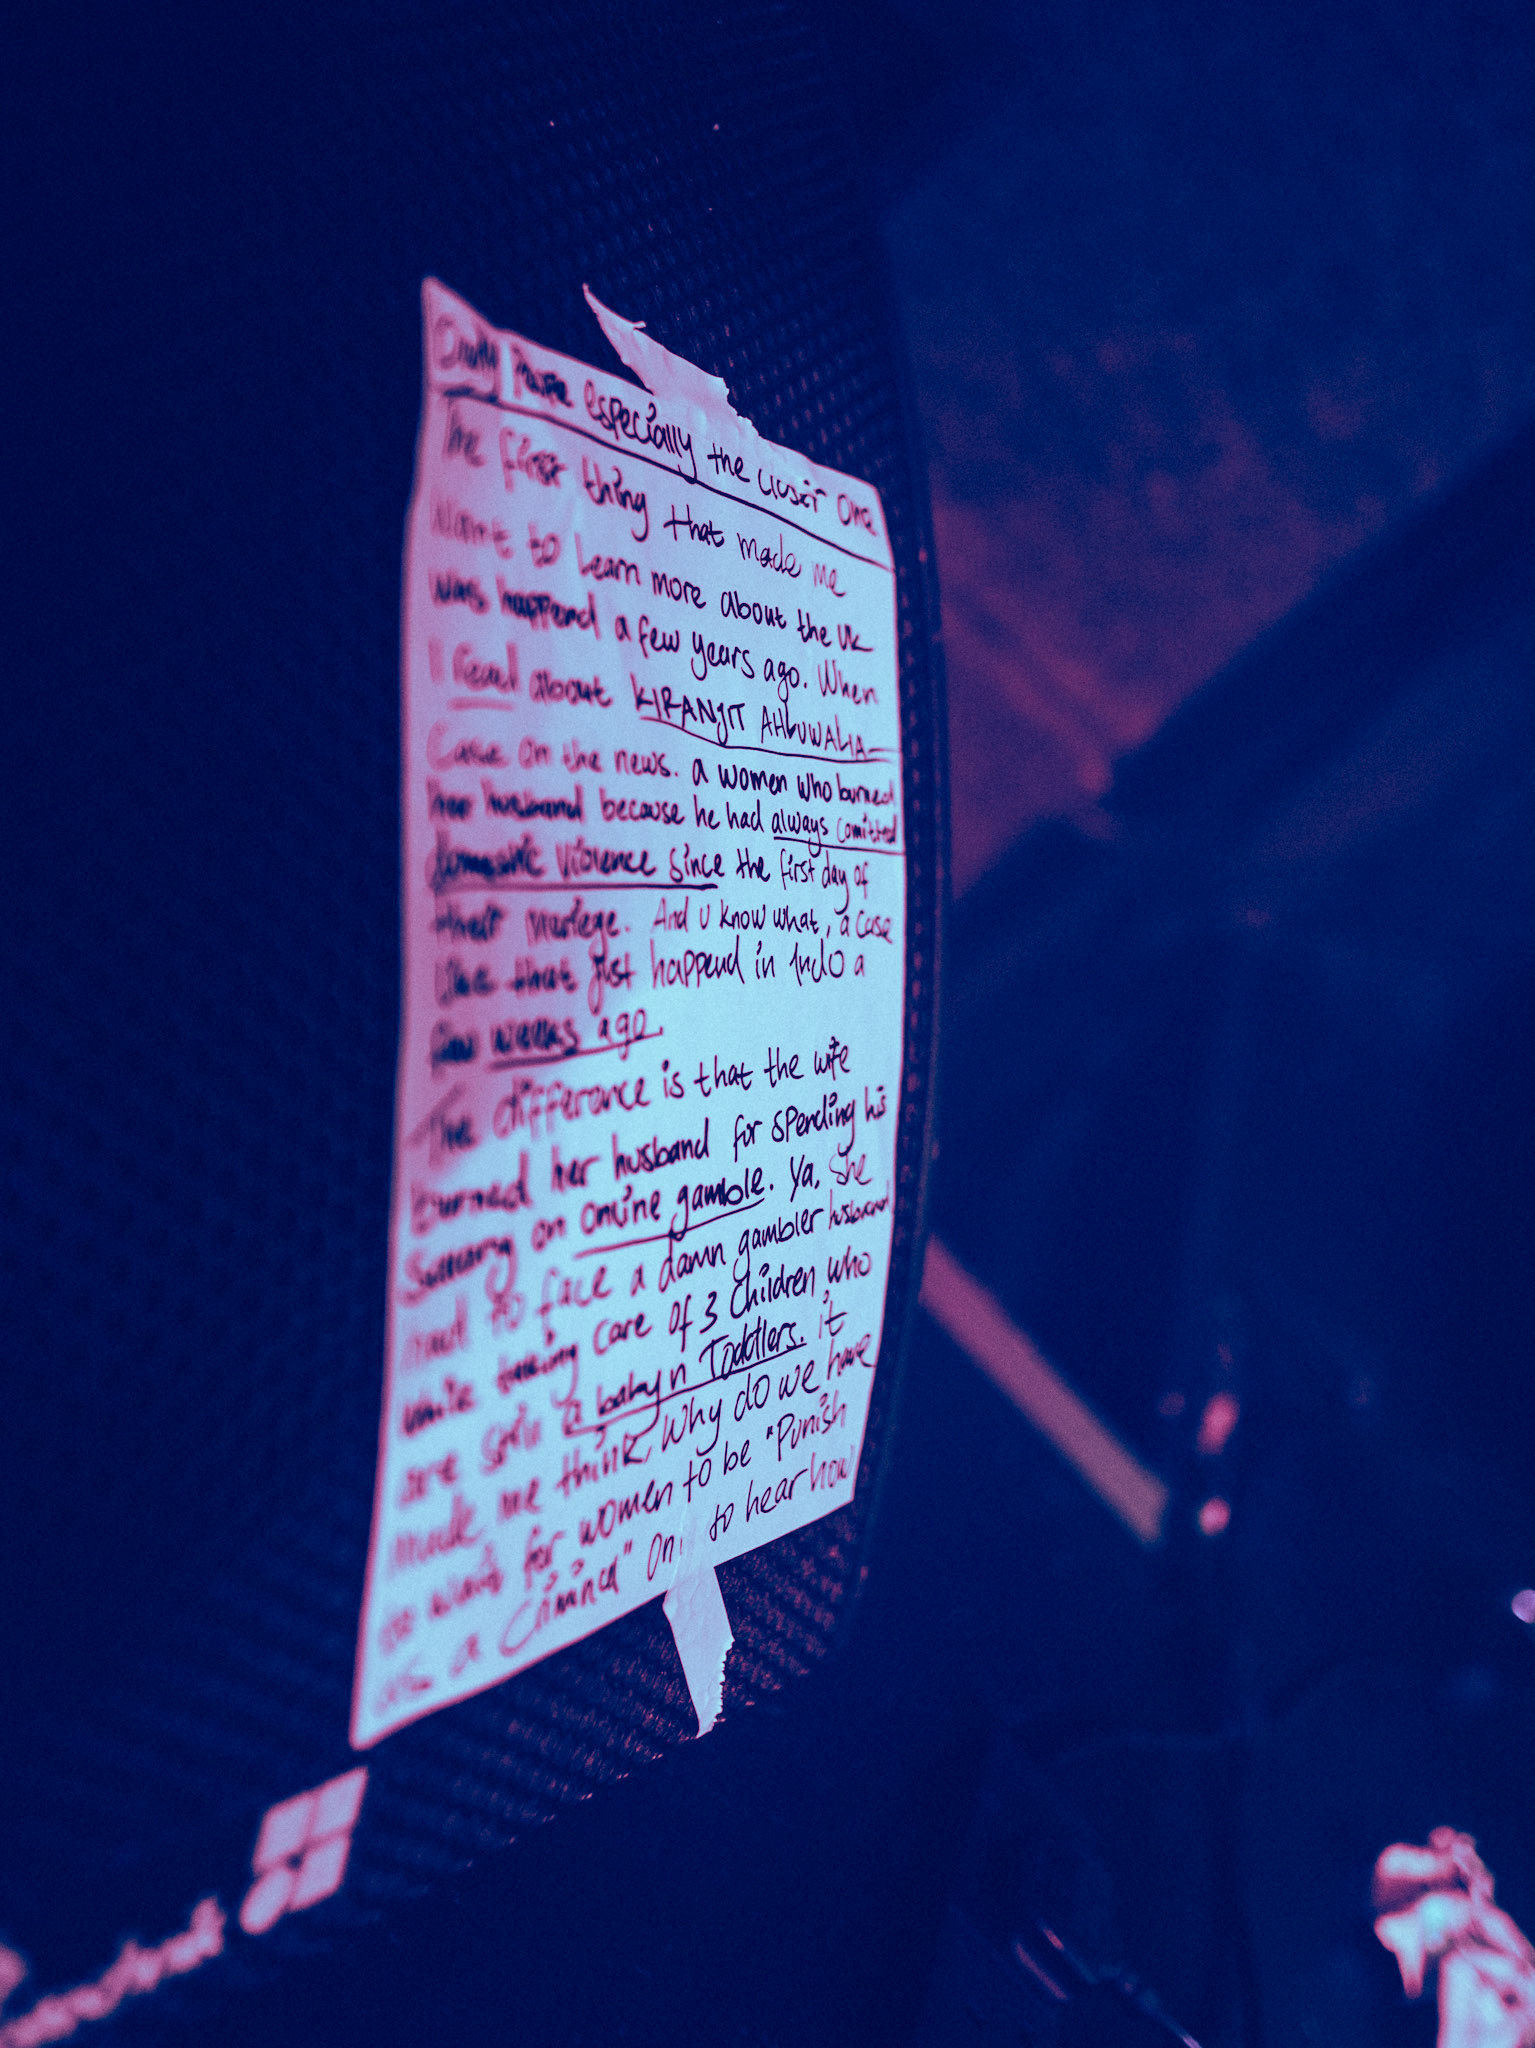 especially the closer one
The first thing that made me
Want to learn more about the UK
was happend a few years ago. When
I read about KIRANJIT AHLUWALIA
Case on the news. a women who burned
her husband because he had always comitted
domestic violence since the first day of
their mariege. And u know what, a case
like that just happend in Indo a
few weeks ago.
The difference is that the wife
burned her husband for spending his
on online gamble. Ya, she
had to face a damn gambler husband
while taking care of 3 children who
are still a baby n Toddlers. it
made me think, Why do we have
to wait for women to be "Punish
as a Criminal" to hear how